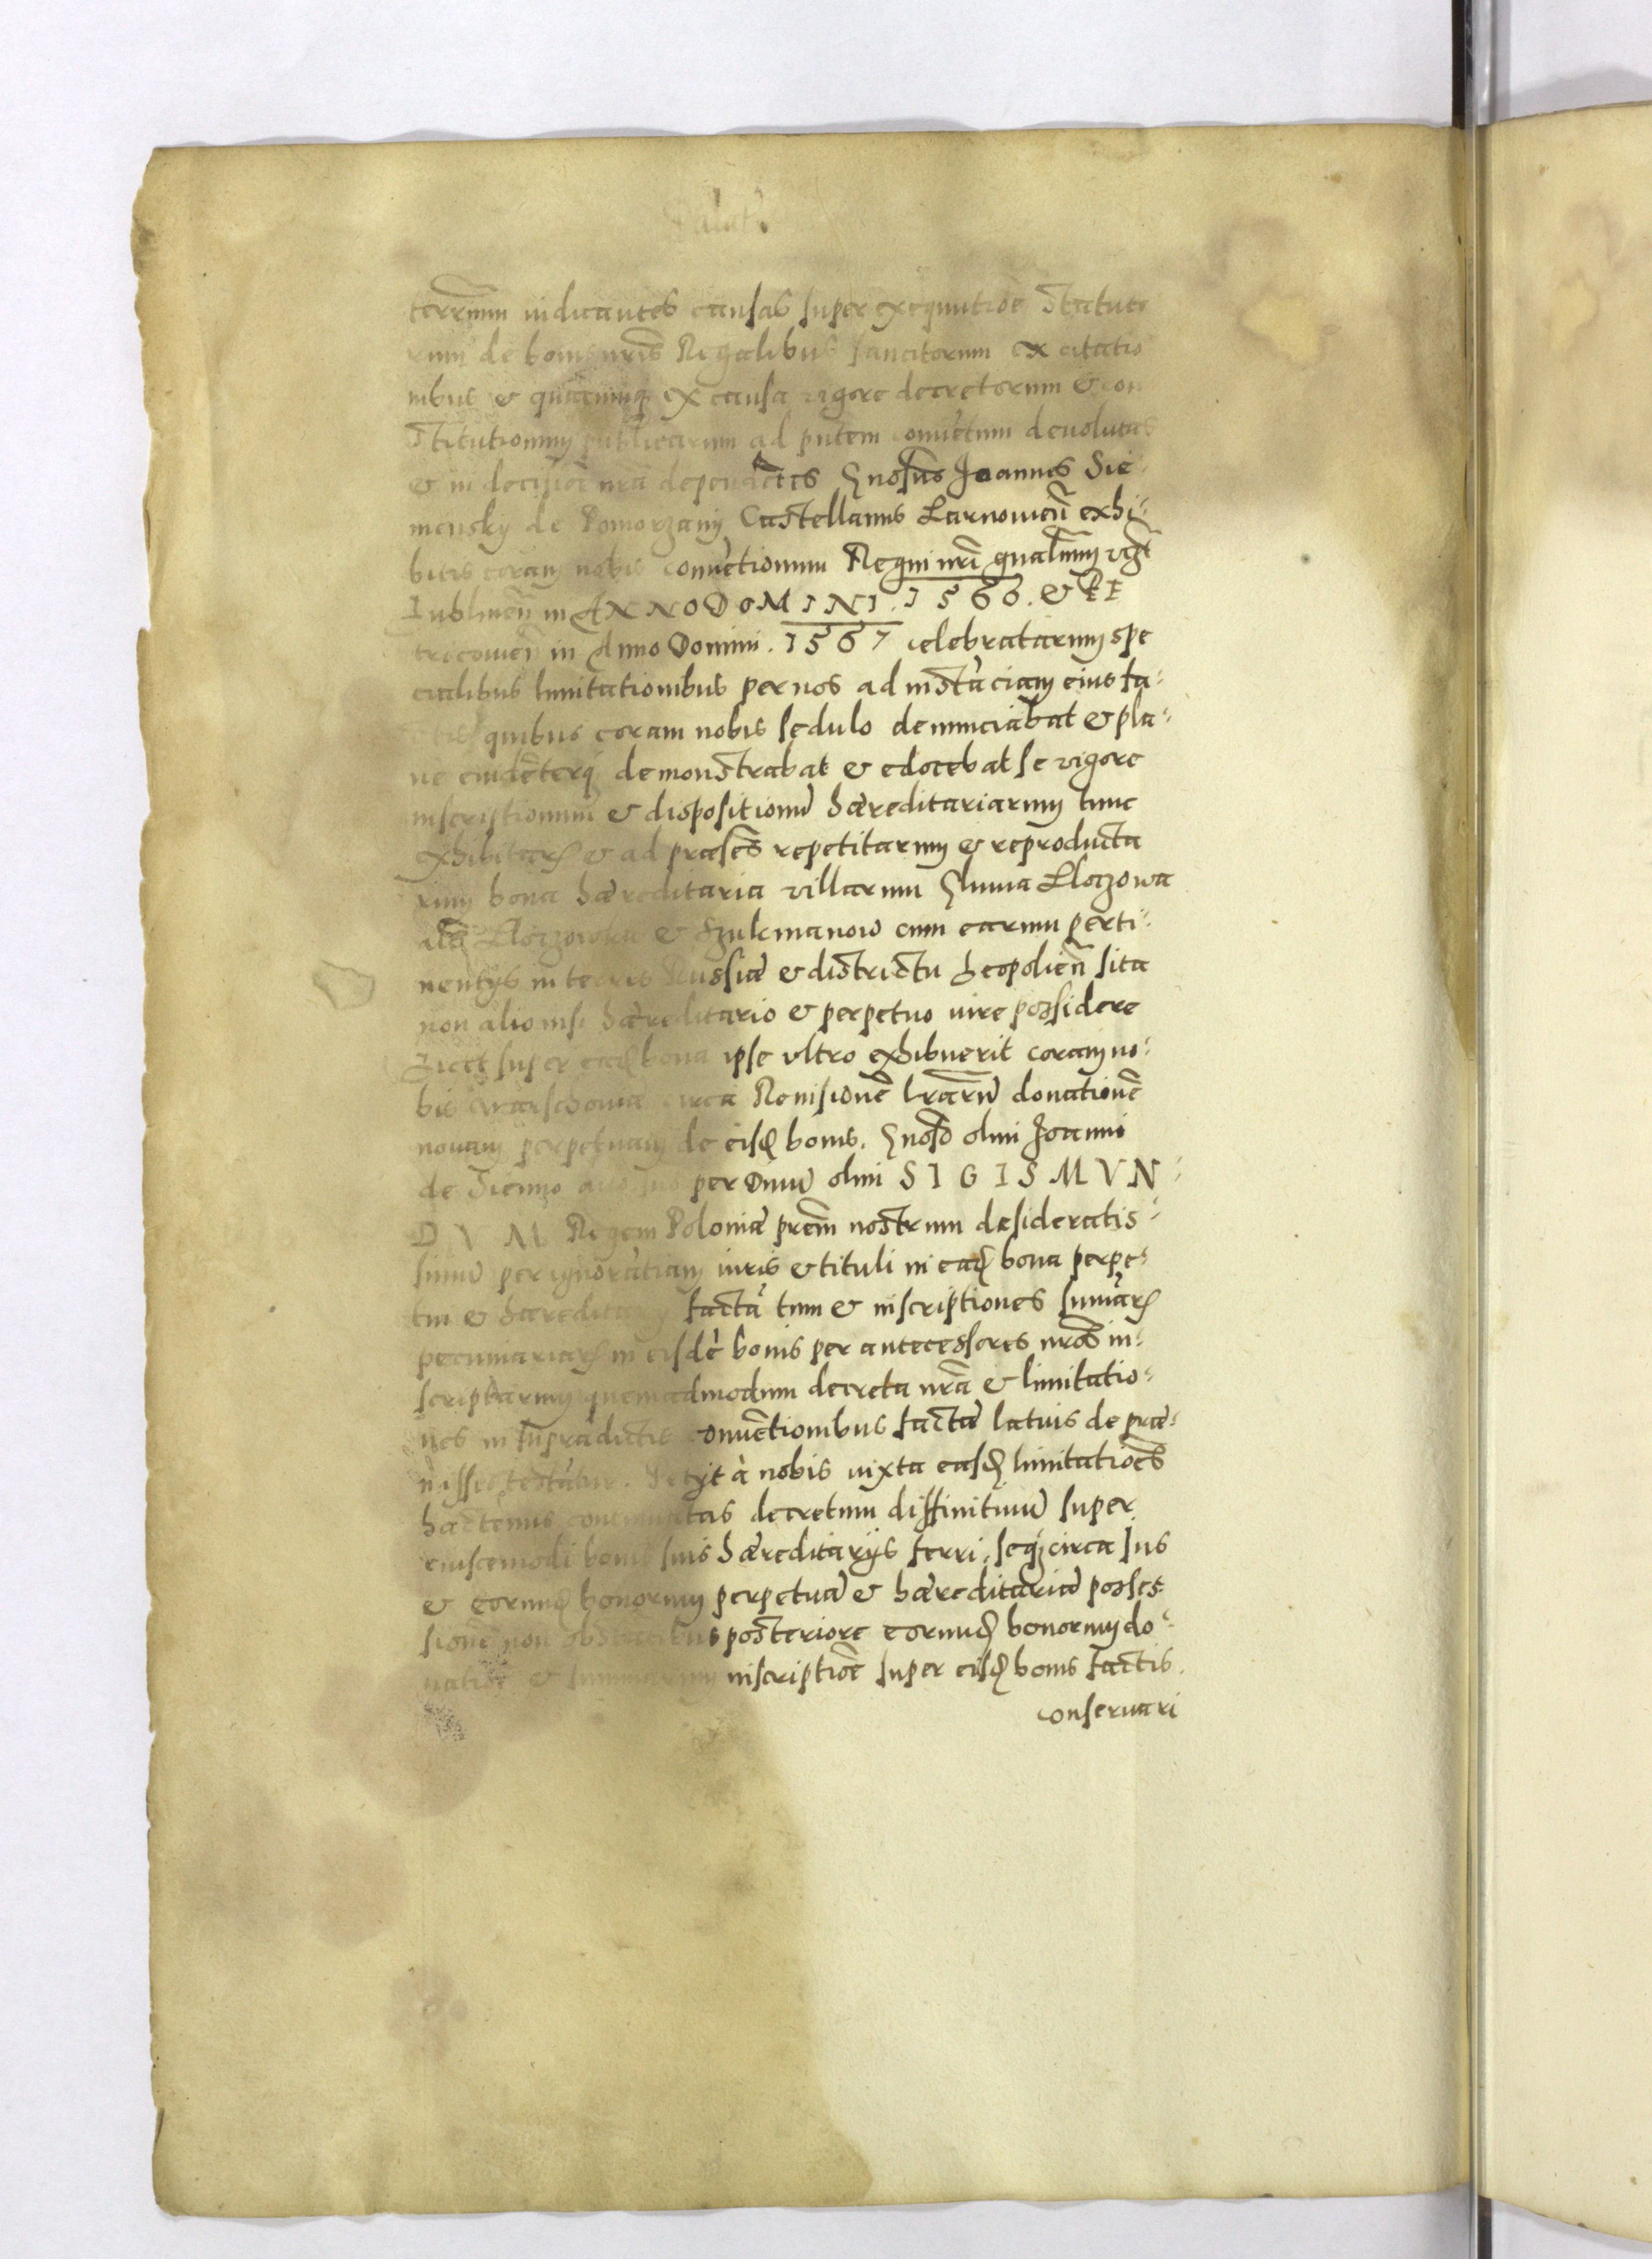 terrarum iudicantes causas super exequutioē Statuto
rum de bonis nrīs Regalibus sancitorum ex citatio
nibus & quacunq ex causa vigore decretorum & con
stitutionum publicarum ad pntem conuētum deuolutas
& in decisioē nrā dependētes Gnosus Joannes Sie-
miensky de Pomorzany Castellanus Larnouień exhi-
bitis coram nobis conuētionum Regni nrī gnalium
Lublineń in ANNO DOMINI. 1566. & PE
trcouień in Anno Domini. 1567 celebratarum spe
cialibus limitationibus per nos ad instāciam eius fa-
ctis quibus coram nobis sedulo denunciabat & pla-
ne euidēterq demonstrabat & edocebat se vigore
inscriptionum & dispositionū hæreditariarum tunc
exhibitarꝝ & ad præsēs repetitarum & reproducta
rum bona hæreditaria villarum Hluma Zloczowa
als Zloczowka & Szulcmanow cum earum perti-
nentijs in terris Russiæ & districtu Leopolień sita
non alio nisi hæreditario & perpetuo iure possidere
Licet super ead bona ipse vltro exhibuerit coram no-
bis Warschowiæ circa Reuisionē lrarū donationē
nouam perpetuam de eisd bonis. Gnoso olim Joanni
de Sienno auo suo per Diuū olim SIGISMVN-
DVM Regem Poloniæ prēm nostrum desideratis-
simū per ignorātiam iuris & tituli in ead bona perpe-
tui & hæreditarij factā tum & inscriptiones summarꝝ
pecuniariarꝝ in eisdē bonis per antecessores nros in-
scriptarum quemadmodum decreta nrā & limitatio-
nes in supradictis conuētionibus factæ latius de præ-
missis testātur. Petijt à nobis iuxta easd limitatioēs
hactenus continuatas decretum diffinitiuū super
eiuscemodi bonis suis hæreditarijs ferri, seq circa Ius
& eorumd bonorum perpetuā & hæreditariā posses-
sionē non obstantibus posteriore eorumd bonorum do-
natioē & summarum inscriptioē super eisd bonis factis.
conseruari